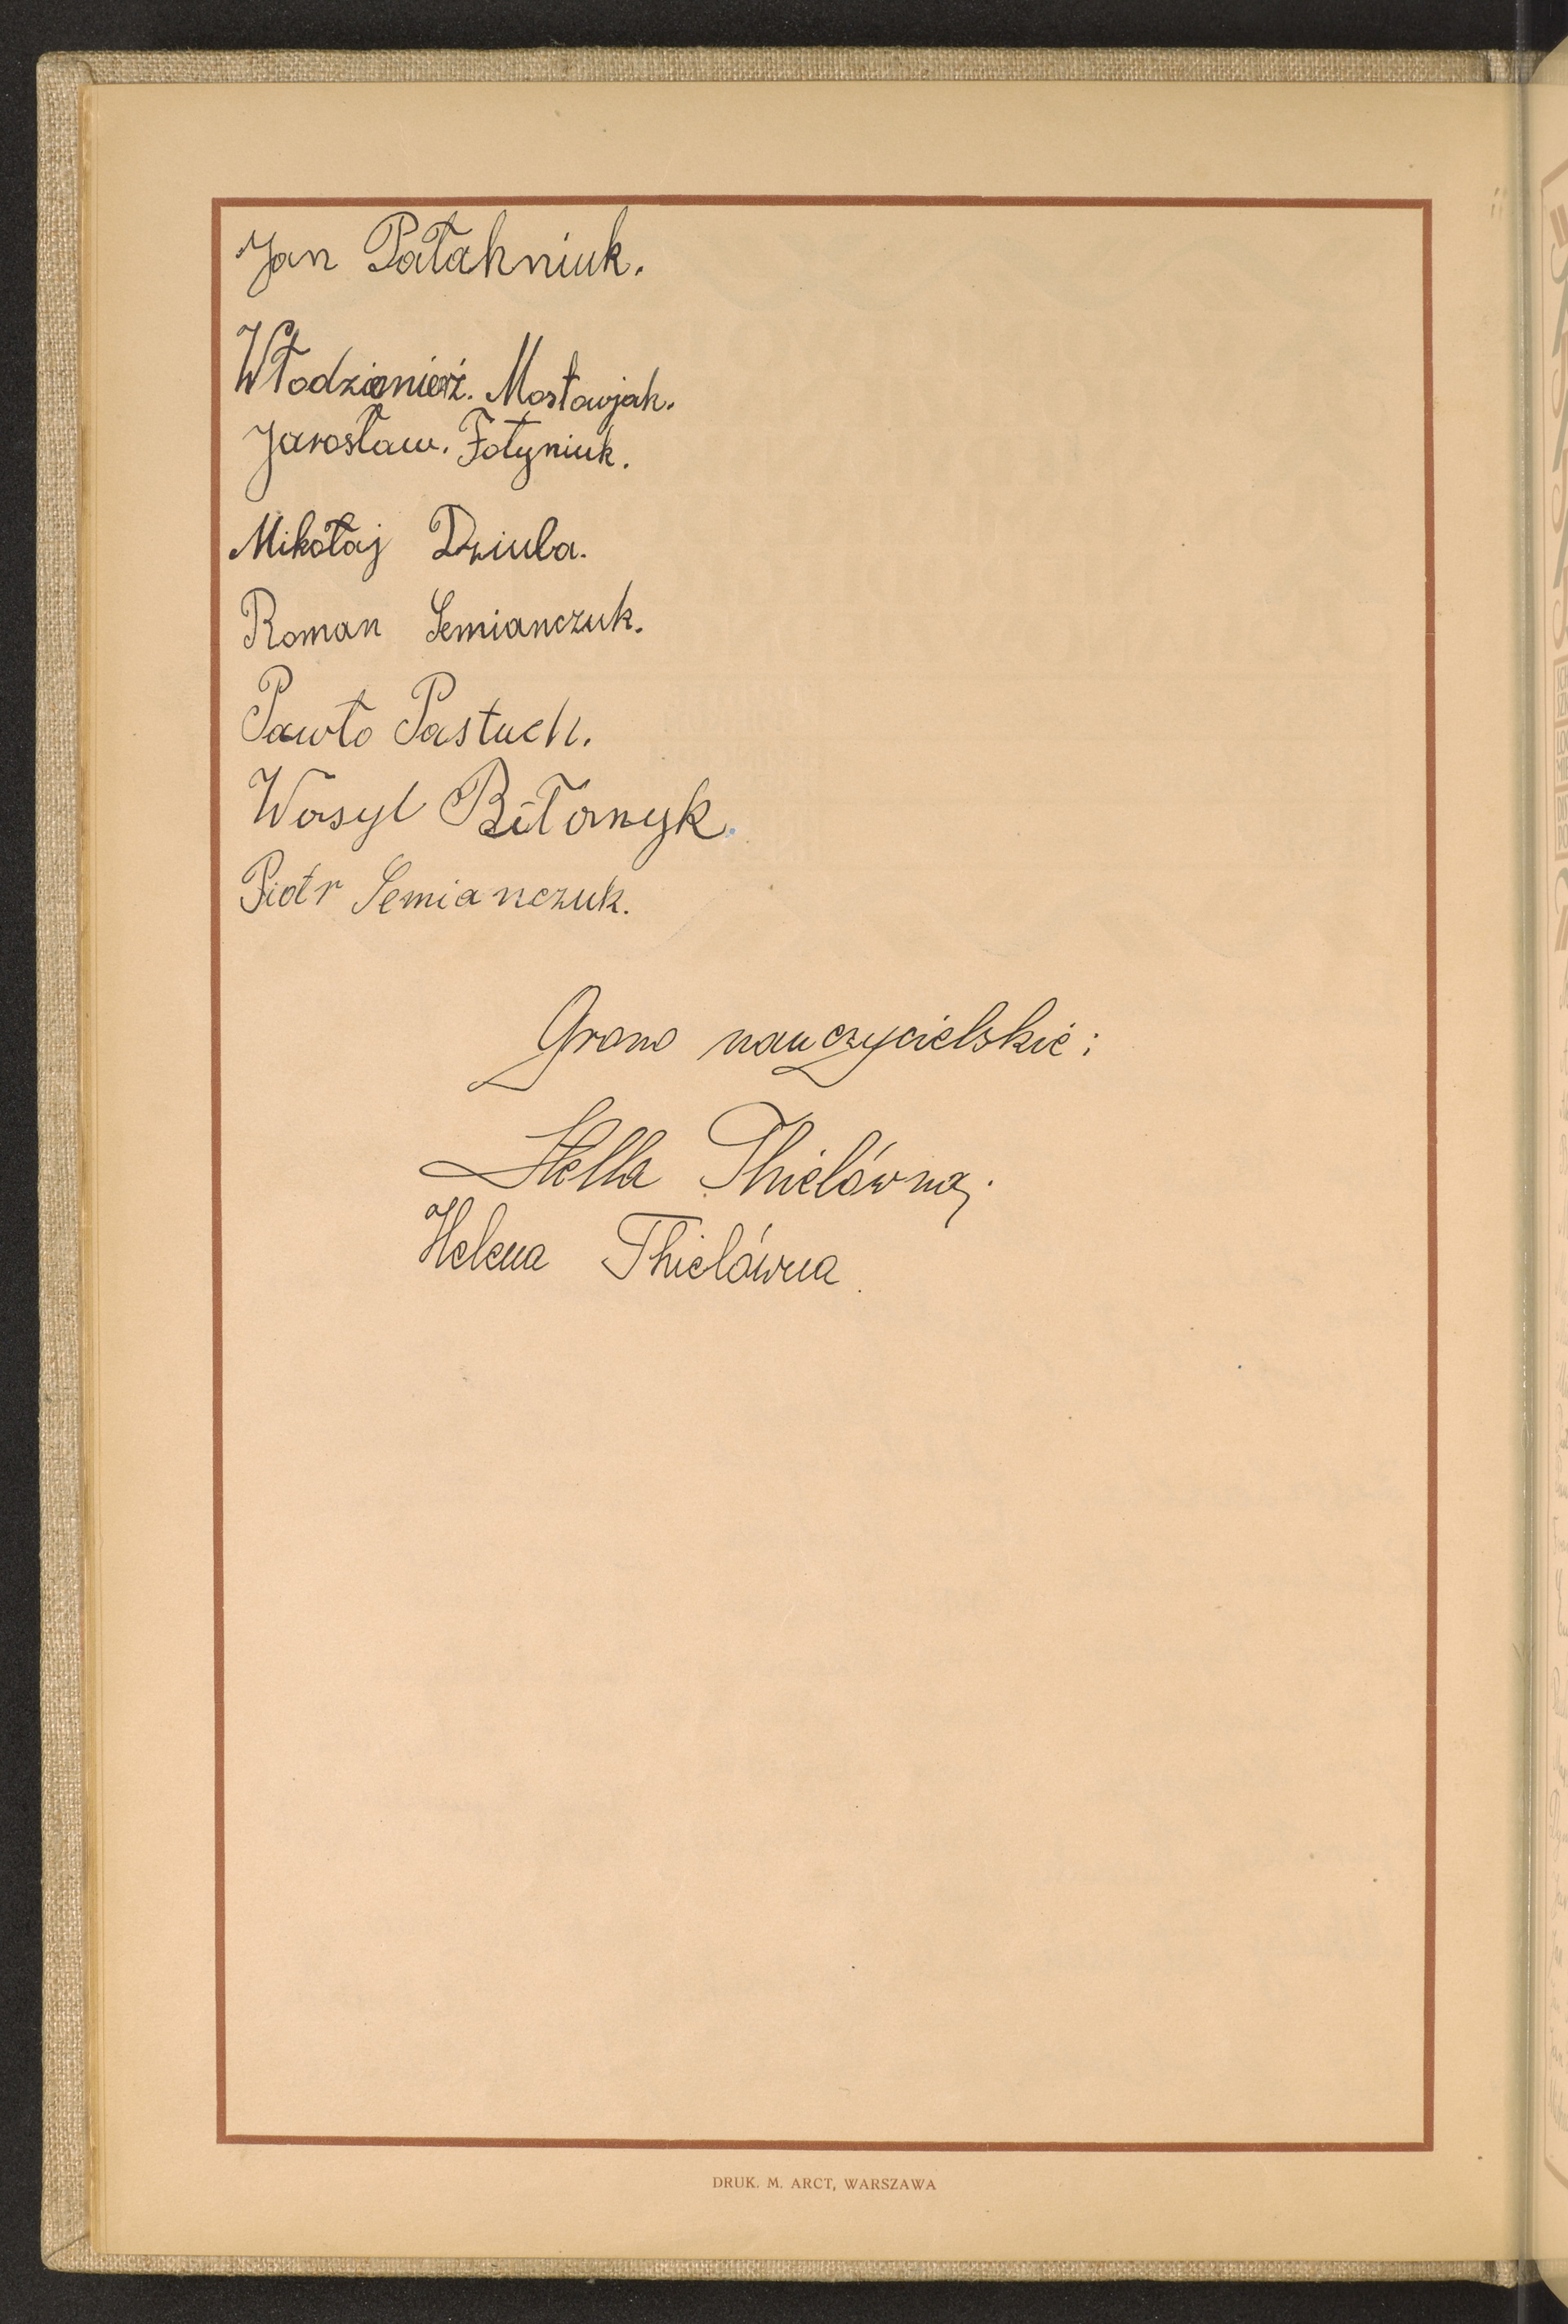 Jan Pałahniuk.
Włodzimierz. Mostowjak.
Jarosław. Fołyniuk.
Mikołaj Dziuba.
Roman Semianczuk.
Pawło Pastuch.
Wasyl Biłanyk.
Piotr Semianczuk.
Grono nauczycielskie:
Stella Thielówna.
Helena Thielówna.
DRUK. M. ARCT, WARSZAWA